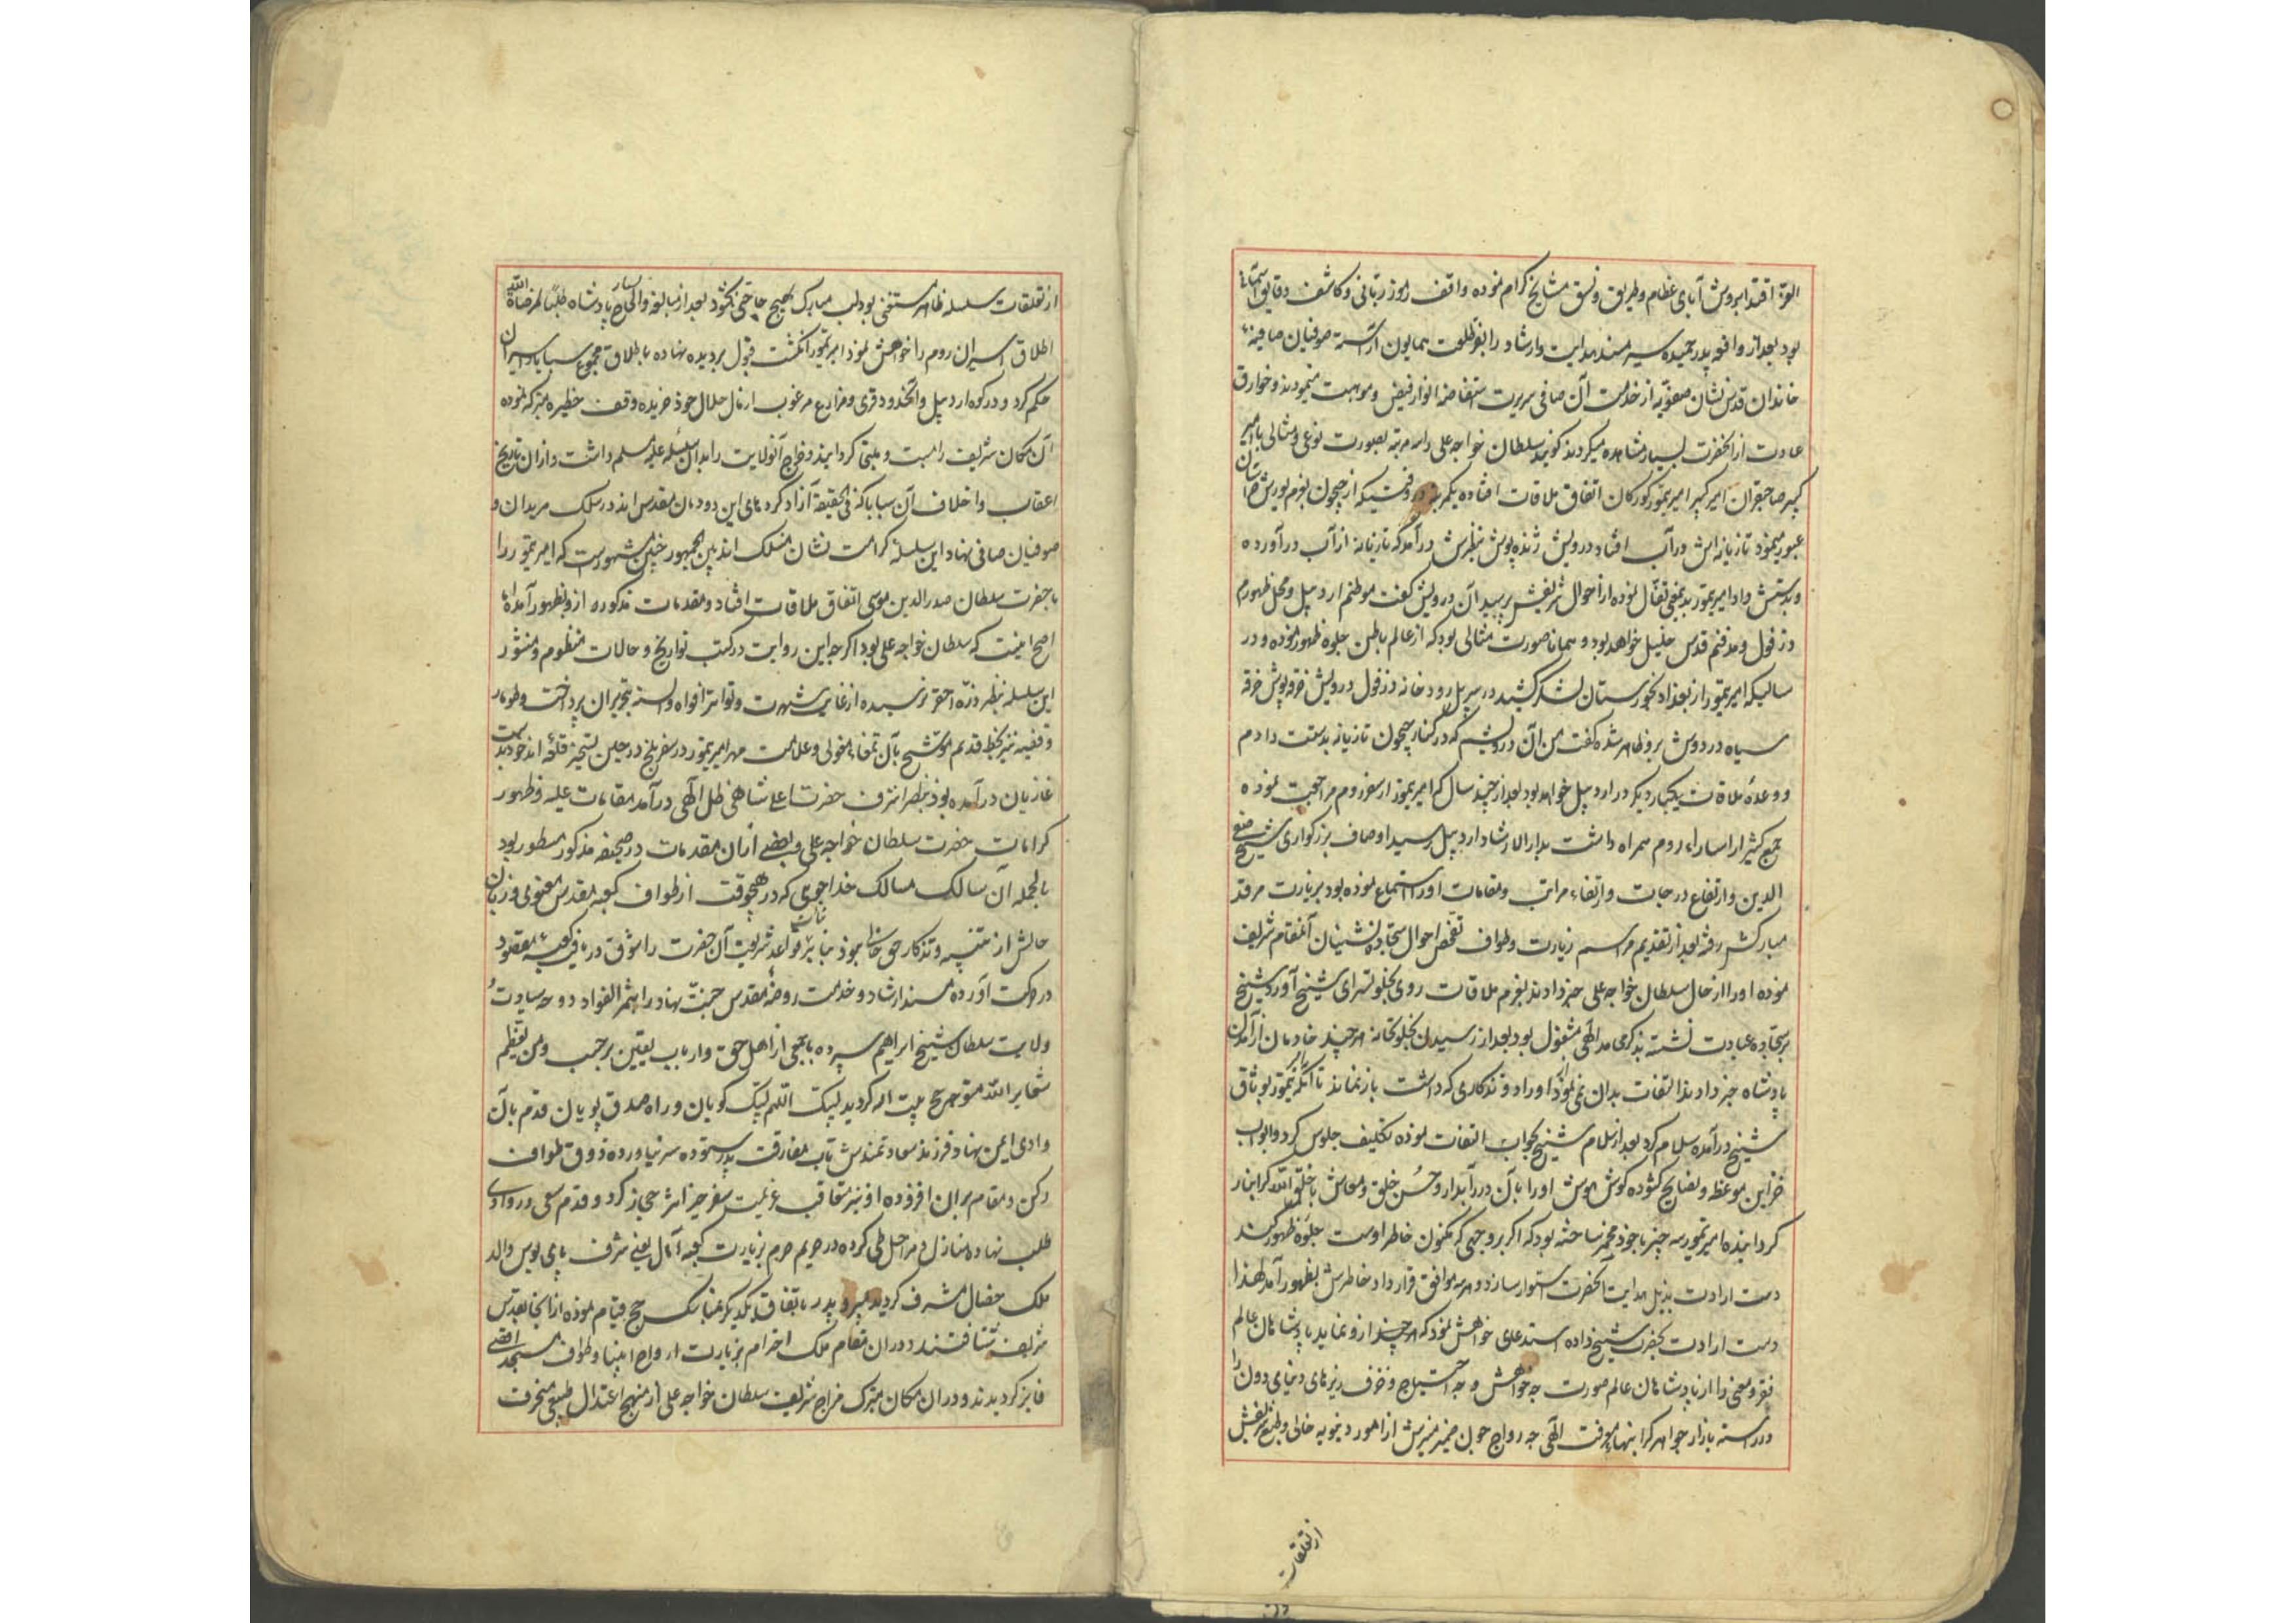 العزة اقتدا بروش آبای عظام و طریق و نسق مشایخ کرام نموده واقف رموز ربانی و کاشف دقایق آسمانی
بود بعد از واقعه پدر حمیده سیر مسند هدایت و ارشاد را بفرّ طلعت همایون آراسته صوفیان صافیه
خاندان قدس نشان صفویه از خدمت آن صافی سریرت استفاضه انوار فیض و موهبت مینمودند و خوارق
عادت از آنحضرت بسیار مشاهده میکردند گویند سلطان خواجه علی را سه مرتبه بصورت نوعی و مثالی با امیر
کبیر صاحبقران امیر کبیر امیر تیمور کورکان اتفاق ملاقات افتاده یکمرتبه در وقتیکه از جیحون بعزم یورش خراسان
عبور مینمود تازیانه اش در آب افتاد درویش ژنده پوش بنظرش درآمد که تازیانه از آب درآورده
و بدستش داد امیر تیمور بدینمعنی تفأل نموده از احوال شریفش پرسید آن درویش گفت موطنم اردبیل و محل ظهورم
دزفول و مدفنم قدس خلیل خواهد بود و همانا صورت مثالی بود که از عالم باطن جلوه ظهور نموده و در
سالیکه امیر تیمور از بغداد بخورستان لشکر کشید در سر پل رودخانه دزفول درویش خرقه پوش خرقه
سیاه در دوش برو ظاهر شده گفت من آن درویشم که در کنار جیحون تازیانه بدستت دادم
و وعدهٔ ملاقات یکبار دیگر در اردبیل خواهد بود بعد از چند سال که امیر تیمور از سفر روم مراجعت نموده
جمع کثیر از اسارای روم همراه داشت بدار الارشاد اردبیل رسید اوصاف بزرگواری شیخ صفی
الدین و ارتفاع درجات و ارتقاء مراتب و مقامات او را استماع نموده بود بزیارت مرقد
مبارکش رفته بعد از تقدیم مراسم زیارت و طواف تفحص احوال سجاده نشینان آنمقام شریف
نموده او را از حال سلطان خواجه علی خبر دادند بعزم ملاقات روی بخلوتسرای شیخ آورد شیخ
بر سجاده عبادت نشسته بذکری مد الهی مشغول بود بعد از رسیدن بخلوتخانه هر چند خادمان از آمدن
پادشاه خبر دادند التفات بدان نمی نمود و از اوراد و تذکاری که داشت باز نماند تا آنکه تیمور بوثاق
شیخ درآمده سلام کرد بعد از سلام شیخ بجواب التفات نموده تکلیف جلوس کرد و ابواب
خزاین موعظه و نصایح کشوده گوش هوش او را بآن درر آبدار و حسن خلق و معاش با خلق الله کرانبار
گردانیده امیر تیمور سه چیز با خود مخمر ساخته بود که اگر بر وجهی که مکنون خاطر اوست جلوهٔ ظهور کند
دست ارادت بذیل هدایت آنحضرت استوار سازد و هر سه موافق قرارداد خاطرش بظهور آمد لهذا
دست ارادت بحضرت شیخ داده استدعای خواهش نمود که هر چند از و نماید پادشاهان عالم
فقر و معنی را از پادشاهان عالم صورت چه خواهش و چه احتیاج و خزف ریزهای دنیای دون را
در رسته بازار جواهر گرانبهای معرفت الهی چه رواج چون ضمیر منیرش از امور دنیویه خالی و طبع شریفش
از تعلقات
از تعلقات سلسله ظاهر مستغنی بود لب مبارک بهیچ حاجتی نکشود بعد از مبالغه و الحاح بسیار پادشاه طلباً لمرضاة الله
اطلاق اسیران روم را خواهش نمود امیر تیمور انگشت قبول بر دیده نهاده باطلاق مجموع سبایا و اسیران
حکم کرد و در کوه اردبیل و آنحدود قری و مزارع مرغوب از مال حلال خود خریده وقف حظیره متبرکه نموده
آن مکان شریف را بست و ملتجا گردانید و خراج آنولایت را بدان سلسله علیه مسلم داشت و از ان تاریخ
اعقاب و اخلاف آن سبایا که فی الحقیقة آزاد کرده های این دودمان مقدس اند در سلک مریدان و
صوفیان صافی نهاد این سلسلهٔ کرامت نشان منسلک اند بین الجمهور چنین مشهورست که امیر تیمور را
با حضرت سلطان صدر الدین موسی اتفاق ملاقات افتاد و مقدمات مذکوره ازو بظهور آمده اما
اصح اینست که سلطان خواجه علی بود اگرچه این روایت در کتب تواریخ و حالات منظوم و منثور
این سلسله بنظر ذرّه احقر نرسیده از غایت شهرت و تواتر افواه و السنه بتحریر ان پرداخت و طومار
وقفیه نیز بخط قدیم موشح بآل تمغاء مغولی و علامت مهر امیر تیمور در سفر بلخ در حین تسخیر قلعهٔ اندخود بدست
غازیان درآمده بود بنظر اشرف حضرت اعلی شاهی ظل الهی درآمد مقامات علیه و ظهور
کرامات حضرت سلطان خواجه علی و بعضی از ان مقدمات در صحیفه مذکور مسطور بود
بالجمله آن سالک مسالک خداجوی که در هیچوقت از طواف کعبه مقدس معنوی و زبان
حالش از تنبیه و تذکار حق خالی نبود بنا بر قواعد شریعت آن حضرت را شوق دریافت کعبهٔ مقصود
در حرکت آورده مسند ارشاد و خدمت روضهٔ مقدس جنت نهاد را بثمر الفواد دوحه سیادت و
ولایت سلطان شیخ ابراهیم سپرده با جمعی از اهل حق و ارباب یقین بر حسب و من یعظم
شعایر الله متوجه حج بیت الله گردید لبیک اللهم لبیک گویان و راه صدق پویان قدم بآن
وادی ایمن نهاد فرزند سعادتمندش تاب مفارقت پدر ستوده سر نیاورده ذوق طواف
رکن و مقام بران افزوده او نیز متعاقب عزیمت سفر خیر اثر حجاز کرد و قدم سعی در وادی
طلب نهاده منازل و مراحل طی کرده در حریم حرم بزیارت کعبه آمال یعنی شرف پای بوس والد
ملک خصال مشرف گردید پسر و پدر باتفاق یکدیگر بمناسک حج قیام نموده از آنجا بقدس
شریف شتافتند و در ان مقام ملک احترام بزیارت ارواح انبیا و طواف مسجد اقصی
فایز گردیدند و در ان مکان متبرک مزاج شریف سلطان خواجه علی از منهج اعتدال طبیعی منحرف